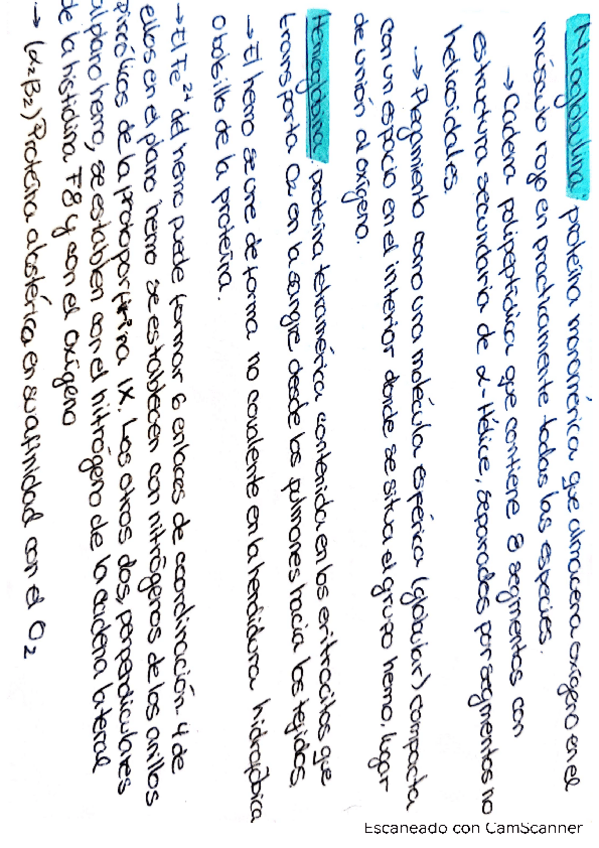 Mioglobina: proteína monomérica que almacena oxígeno en el
músculo rojo en practicamente todas las especies.
→ Cadena polipeptídica que contiene 8 segmentos con
estructura secundaria de α-Hélice, separados por segmentos no
helicoidales
→ Plegamiento como una molécula esférica (globular) compacta
con un espacio en el interior donde se situa el grupo hemo, lugar
de unión al oxígeno.
Hemoglobina: proteína tetramérica contenida en los eritrocitos que
transporta O2 en la sangre desde los pulmones hacia los tejidos.
→ El hemo se une de forma no covalente en la hendidura hidrofóbica
o bolsillo de la proteína.
→ El Fe2+ del hemo puede formar 6 enlaces de coordinación. 4 de
ellos en el plano hemo se establecen con nitrógenos de los anillos
pirrólicos de la protoporfirina IX. Los otros dos, perpendiculares
al plano hemo, se establen con el nitrógeno de la cadena lateral
de la histidina F8 y con el oxígeno
→ (α2β2) Proteína alostérica en su afinidad con el O2
Escaneado con CamScanner